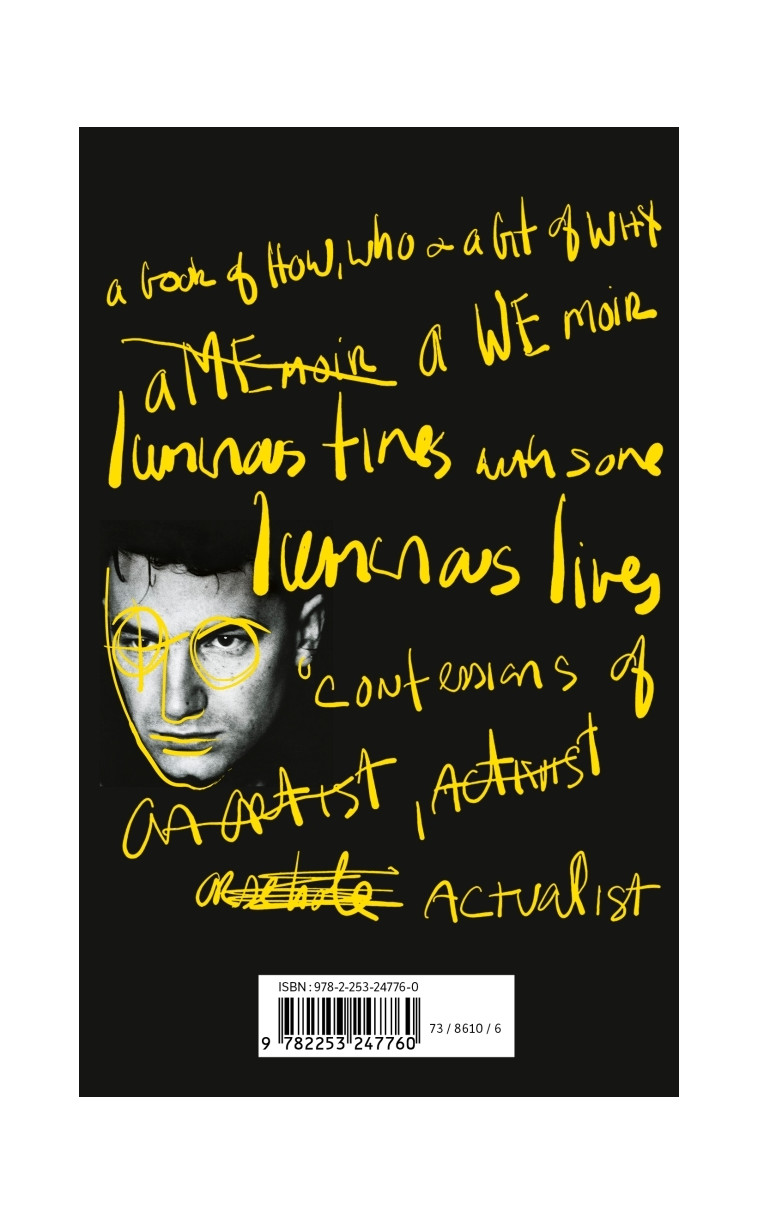 a book of HOW, who & a bit of WHY
a MEmoir a WE moir
luminous times with some
luminous lives
confessions of
an artist, Activist
arsehole Actualist
ISBN : 978-2-253-24776-0
9 782253 247760
73 / 8610 / 6